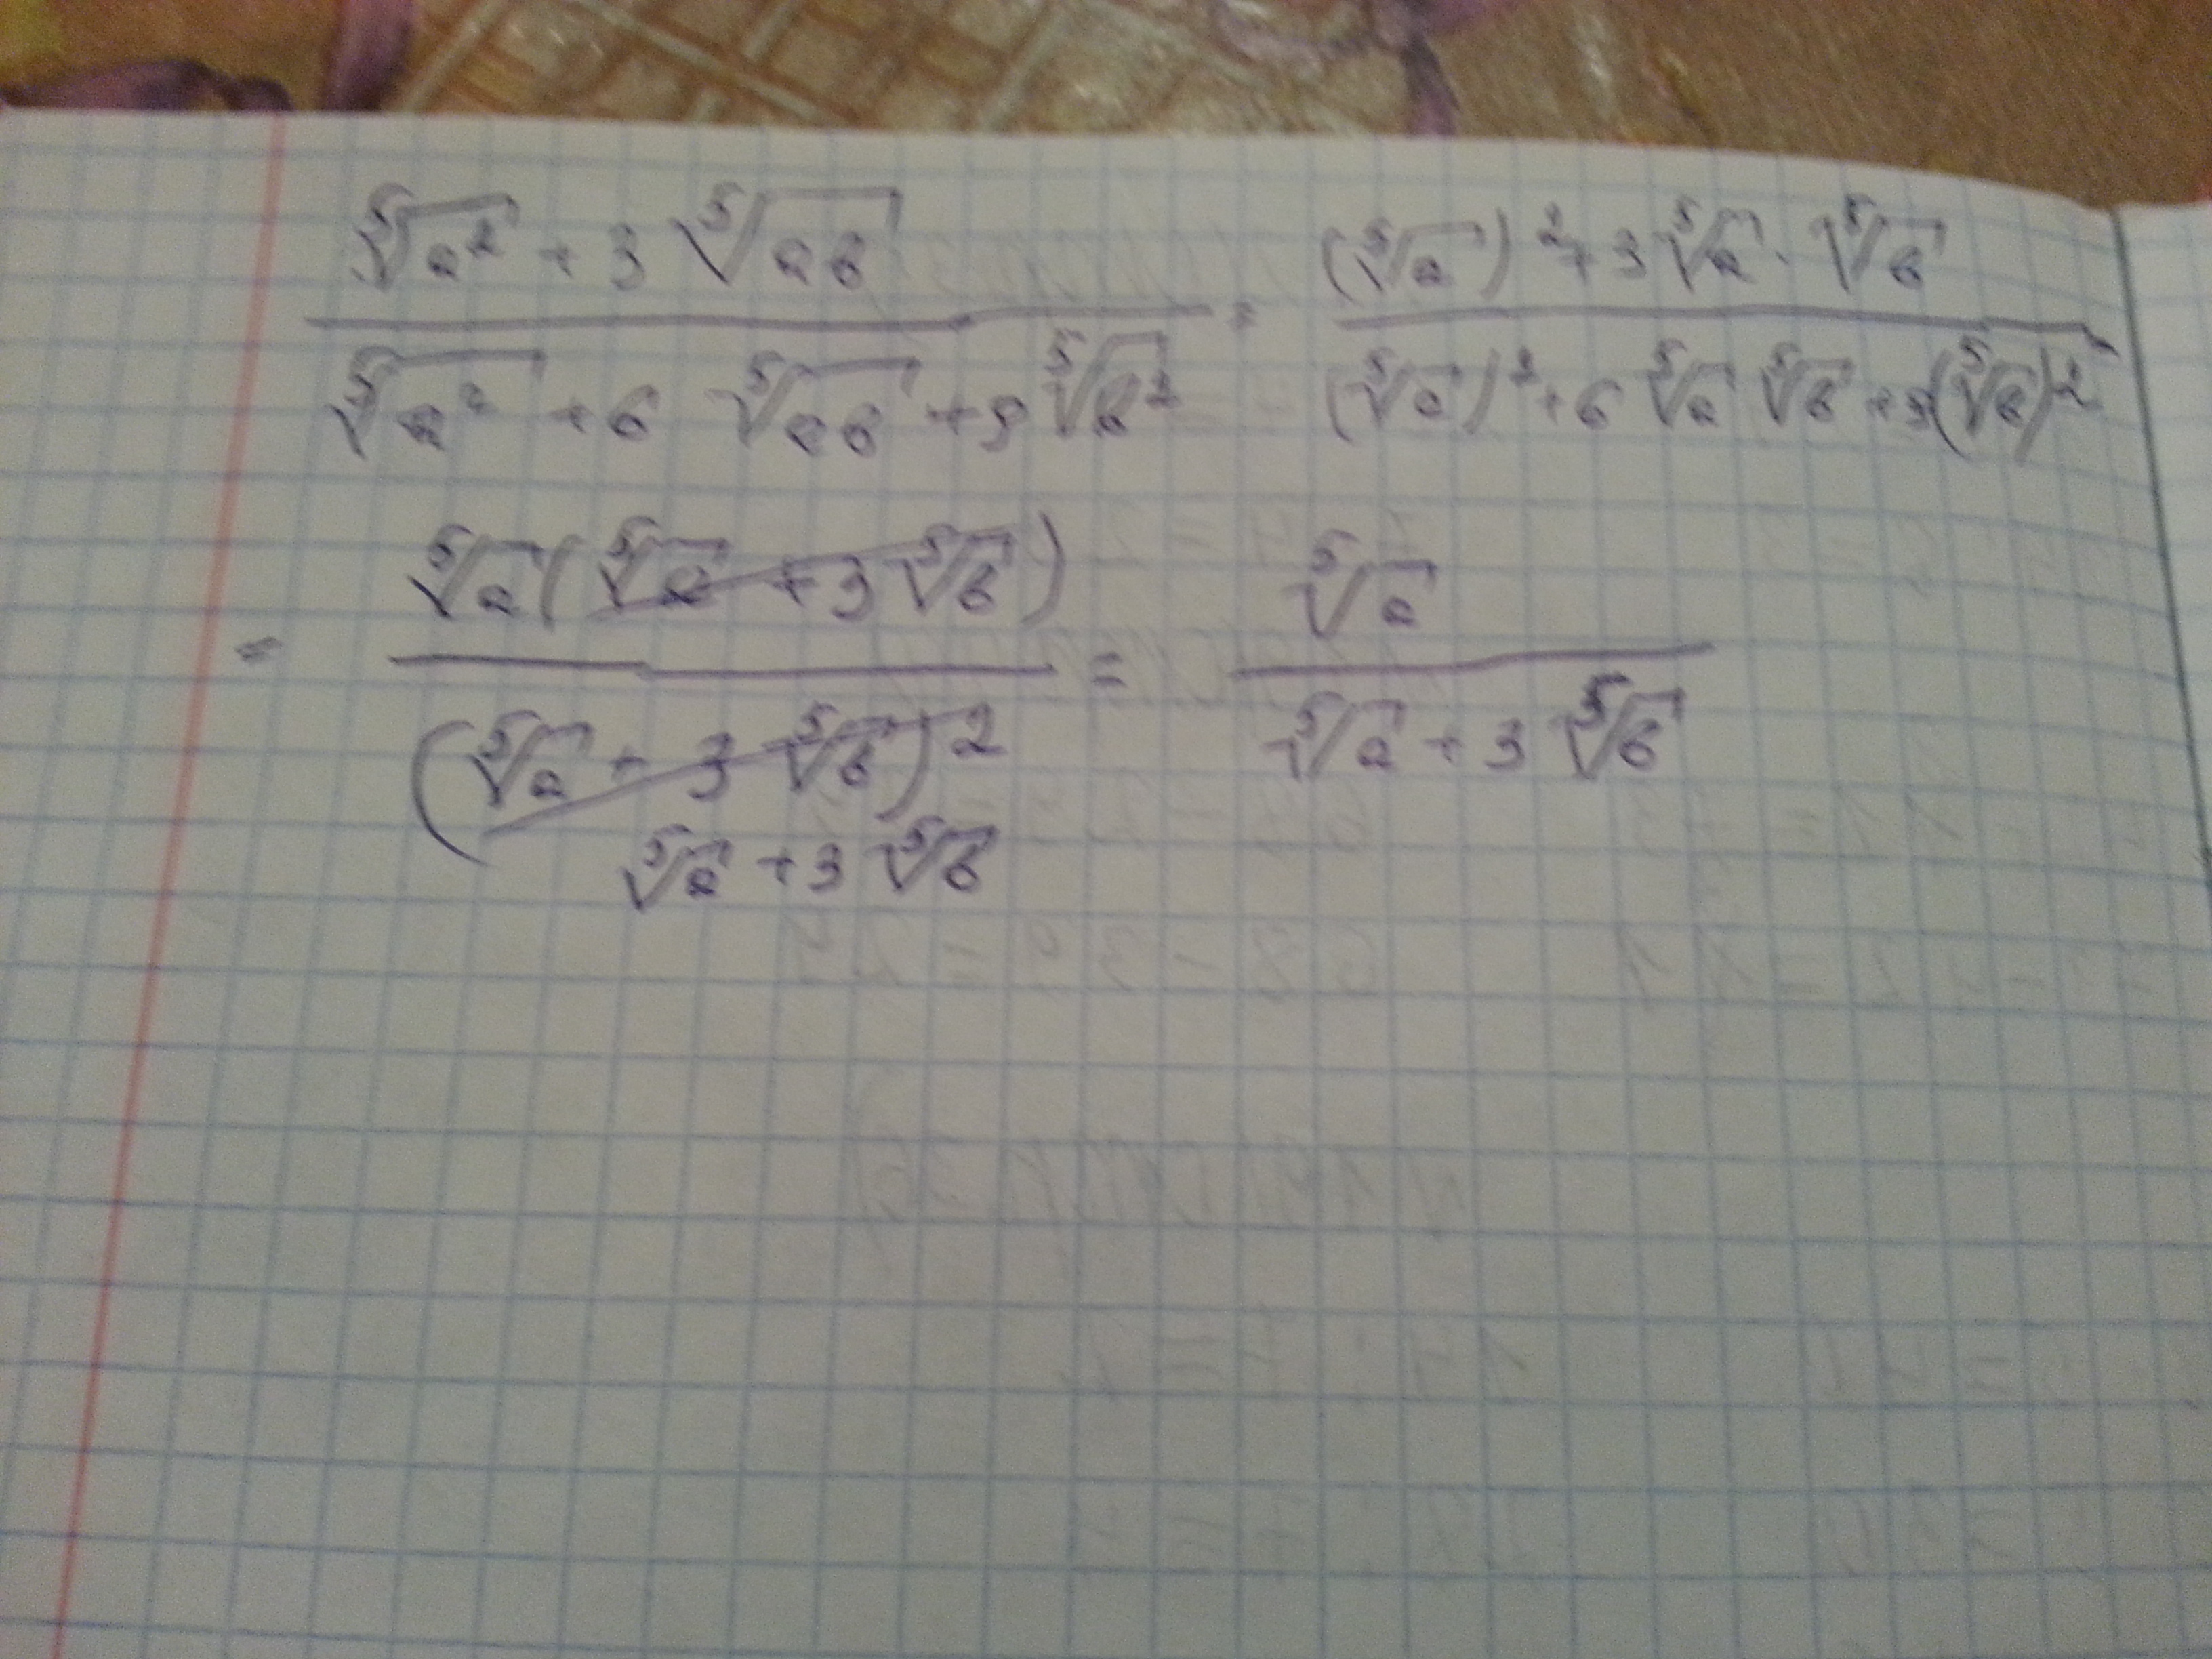 (⁵√a² + 3 ⁵√ab) / (⁵√a² + 6 ⁵√ab + 9 ⁵√b²) = ((⁵√a)² + 3 ⁵√a · ⁵√b) / ((⁵√a)² + 6 ⁵√a ⁵√b + 9(⁵√b)²)
= ⁵√a(⁵√a + 3 ⁵√b) / (⁵√a + 3 ⁵√b)² = ⁵√a / (⁵√a + 3 ⁵√b)
⁵√a + 3 ⁵√b